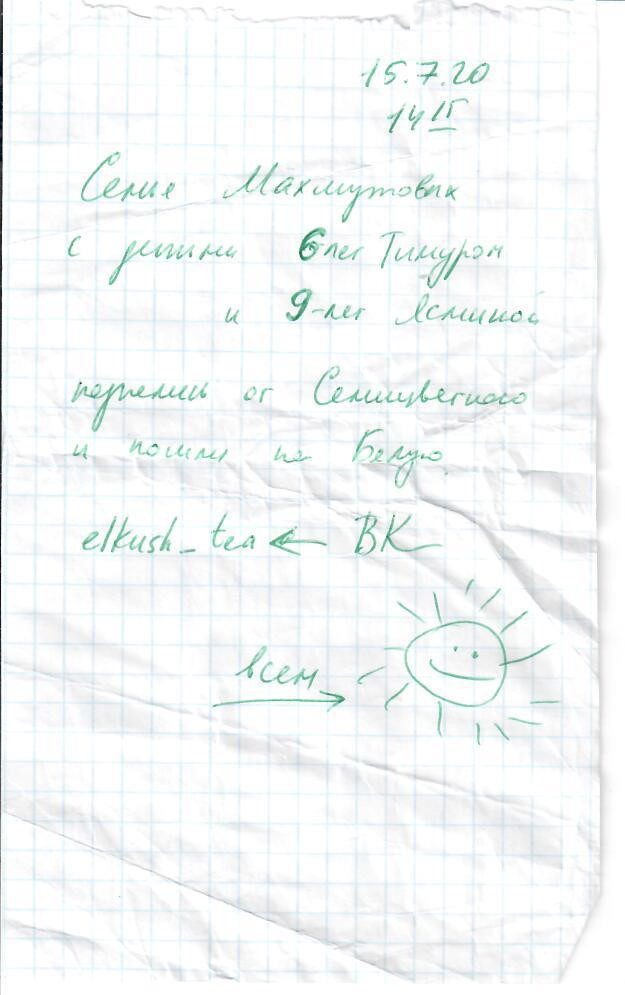 15.7.20
14 15
Семья Махмутовых
с детьми 6 лет Тимуром
и 9-лет Ясминой
поднялись от Семицветного
и пошли на Белую
elkush_tea ← ВК
всем →